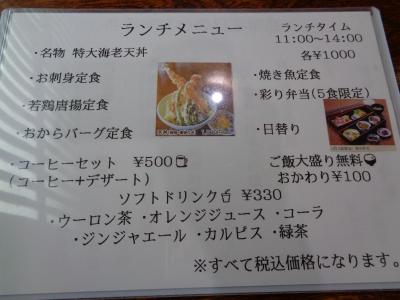 ランチメニュー
ランチタイム
11:00～14:00
・名物 特大海老天丼
各¥1000
・お刺身定食
・焼き魚定食
・若鶏唐揚定食
・彩り弁当(5食限定)
・おからバーグ定食
・日替り
・コーヒーセット ¥500
(コーヒー+デザート)
ご飯大盛り無料
おかわり¥100
ソフトドリンク ¥330
・ウーロン茶 ・オレンジジュース ・コーラ
・ジンジャエール ・カルピス ・緑茶
※すべて税込価格になります。